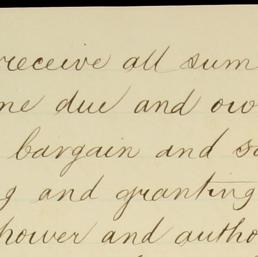 receive all sum
me due and ow
bargain and s
g and granting
power and autho